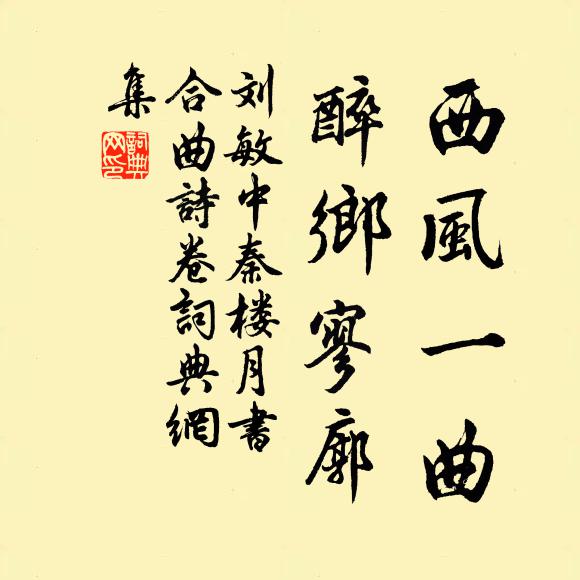 西風一曲
醉鄉寥廓
刘敏中秦楼月書
合曲詩卷詞典網
集
詞典
网印